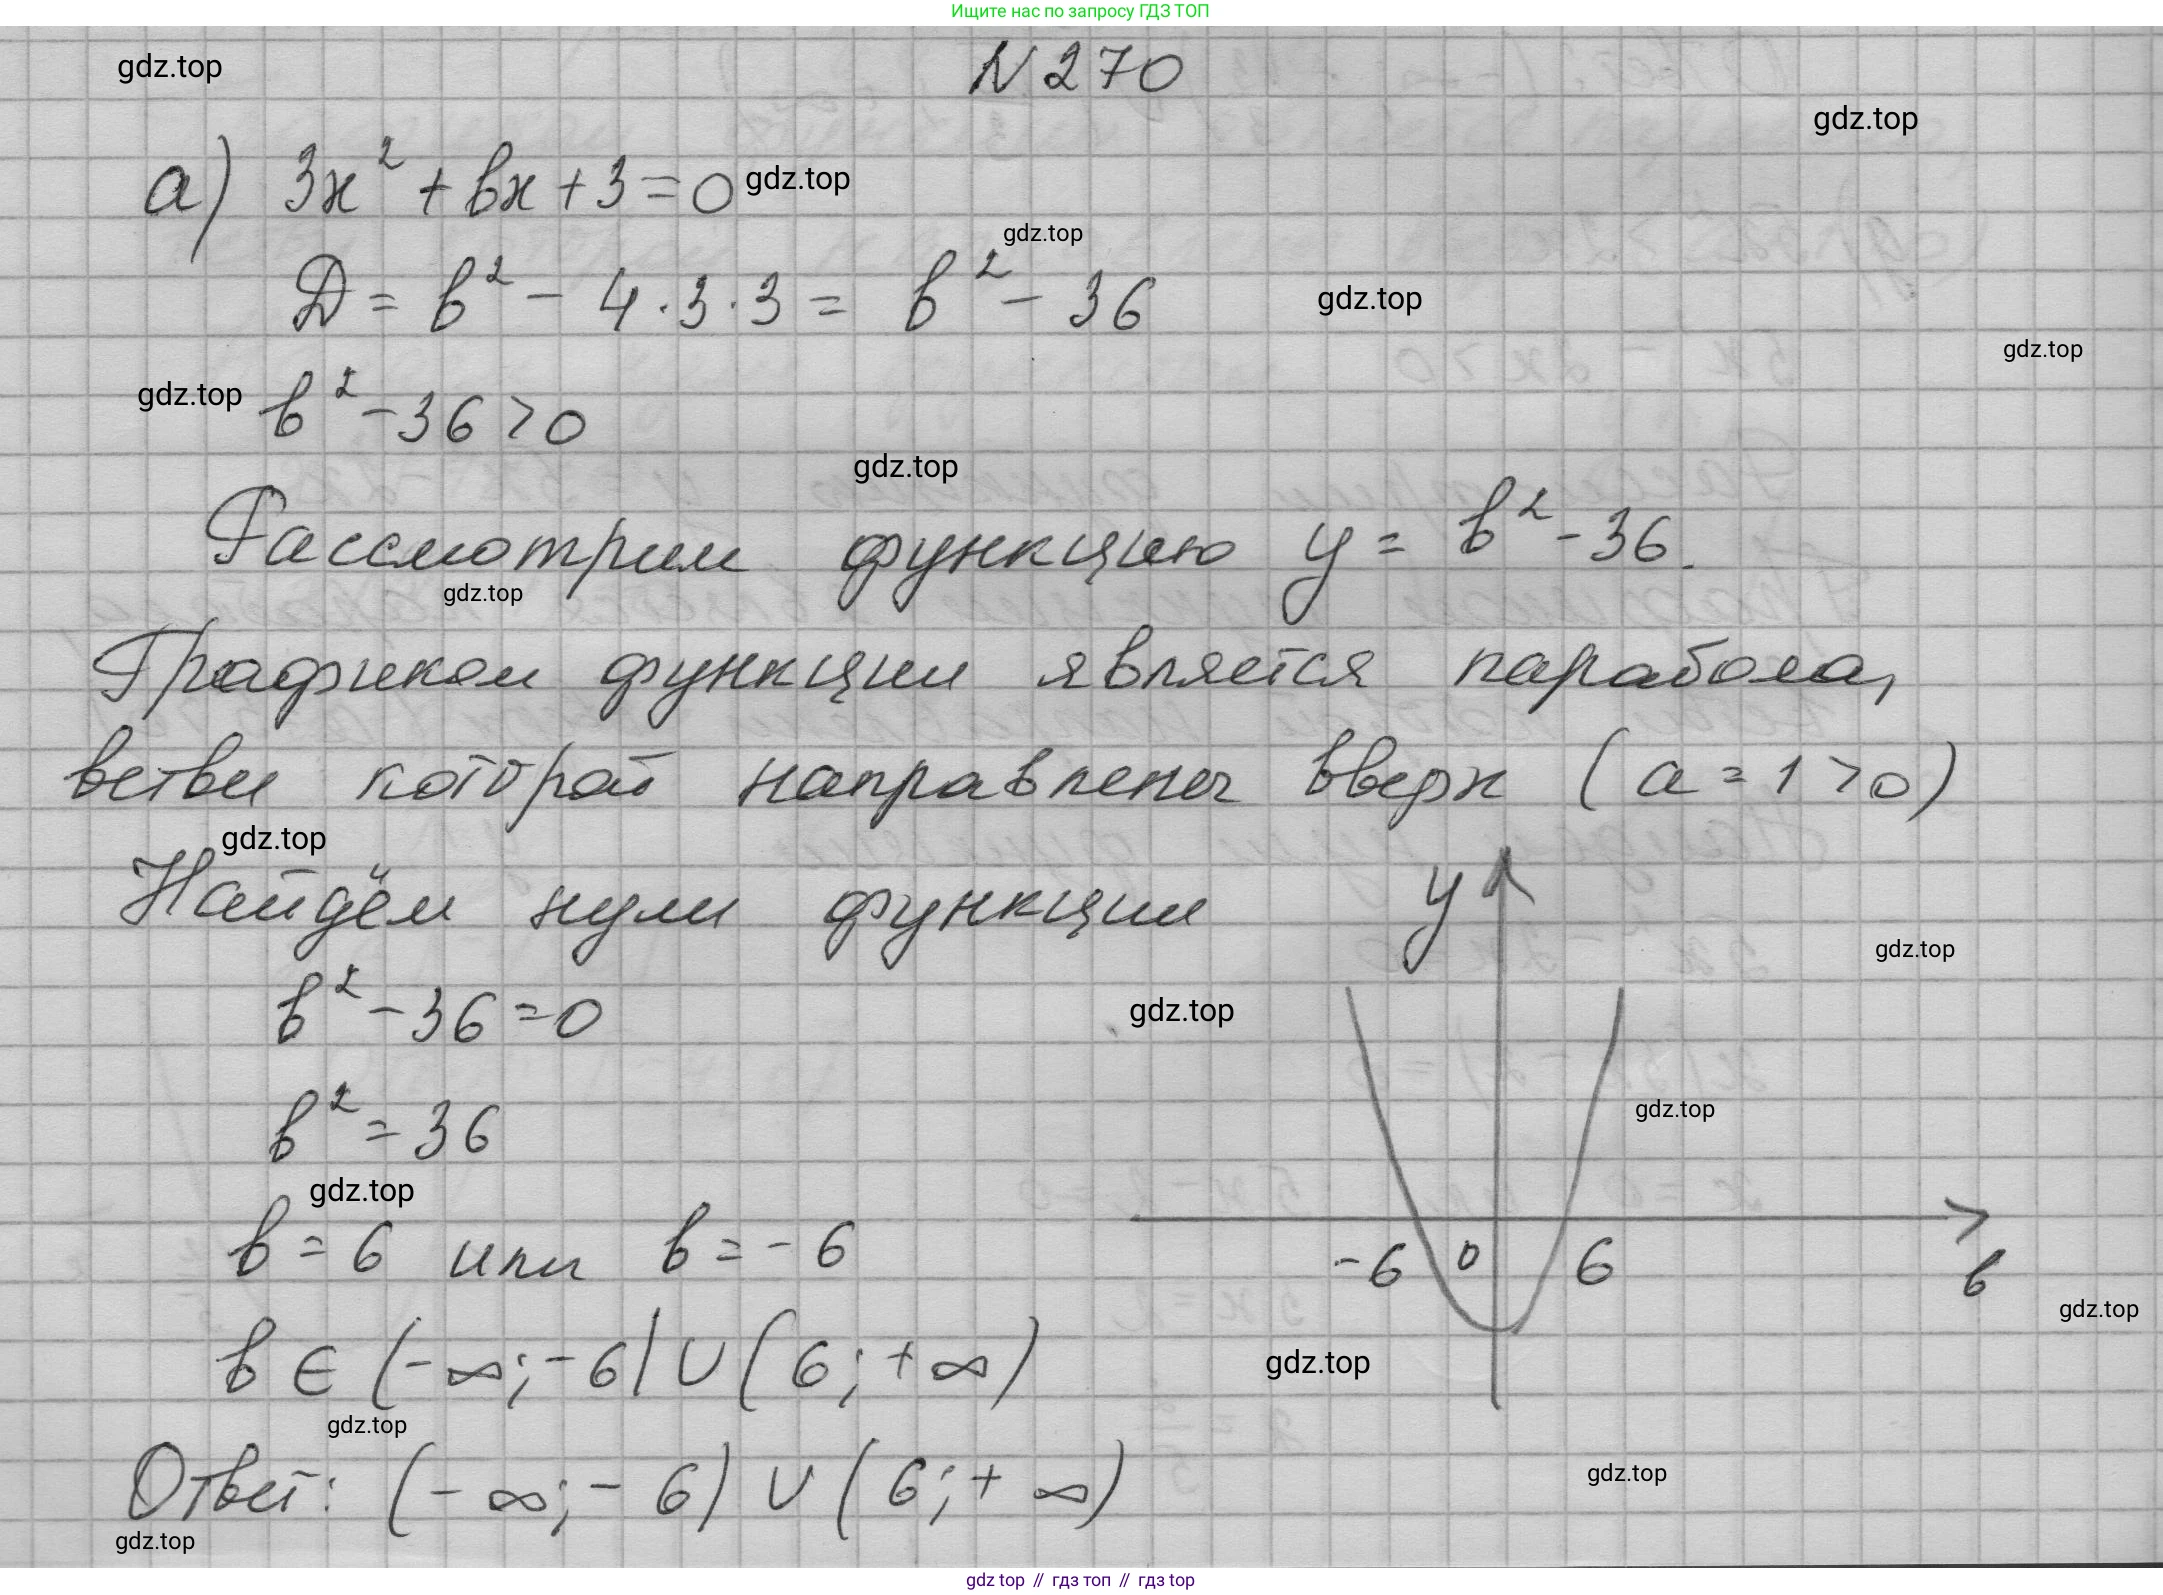 Ищите нас по запросу ГДЗ ТОП
gdz.top
N 270
gdz.top
а) 3x² + bx + 3 = 0 gdz.top
gdz.top
D = b² - 4 · 3 · 3 = b² - 36
gdz.top
gdz.top
gdz.top b² - 36 > 0
gdz.top
Рассмотрим функцию y = b² - 36.
gdz.top
Графиком функции является парабола,
ветви которой направлены вверх (a = 1 > 0)
gdz.top
Найдём нули функции
y
gdz.top
b² - 36 = 0
gdz.top
b² = 36
gdz.top
gdz.top
b = 6 или b = - 6
-6 0 6 b
gdz.top
b ∈ (- ∞; - 6) ∪ (6; + ∞)
gdz.top
gdz.top
Ответ: (- ∞; - 6) ∪ (6; + ∞)
gdz.top
gdz.top
gdz top // гдз топ // гдз top